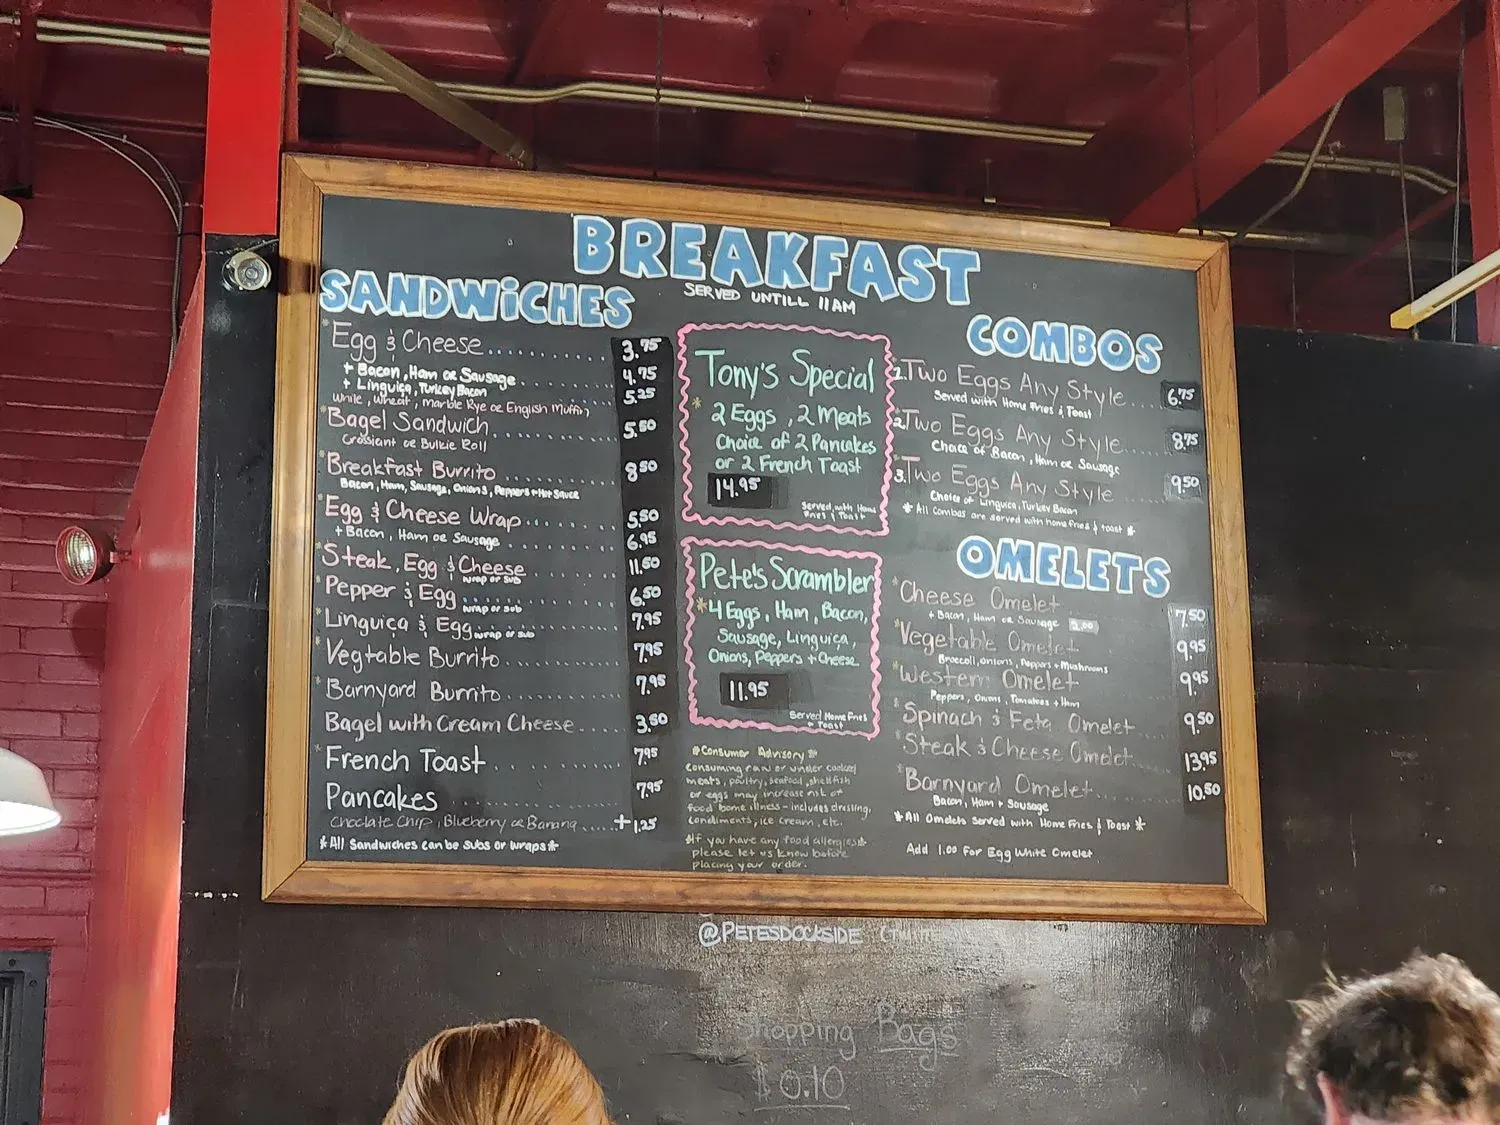 BREAKFAST
SERVED UNTILL 11AM
SANDWiCHES
*Egg & Cheese 3.75
+ Bacon, Ham or Sausage 4.75
+ Linguica, Turkey Bacon 5.25
White, Wheat, Marble Rye or English Muffin
*Bagel Sandwich 5.50
Crossiant or Bulkie Roll
*Breakfast Burrito 8.50
Bacon, Ham, Sausage, Onions, Peppers + Hot Sauce
*Egg & Cheese Wrap 5.50
+ Bacon, Ham or Sausage 6.95
*Steak, Egg & Cheese 11.50
wrap or sub
*Pepper & Egg 6.50
wrap or sub
*Linguica & Egg 7.95
wrap or sub
*Vegtable Burrito 7.95
*Barnyard Burrito 7.95
Bagel with Cream Cheese 3.50
*French Toast 7.95
Pancakes 7.95
Choclate Chip, Blueberry or Banana +1.25
*All Sandwiches can be Subs or Wraps*
Tony's Special
*2 Eggs, 2 Meats
Choice of 2 Pancakes
or 2 French Toast
14.95
Served with Home
Fries & Toast
Pete's Scrambler
*4 Eggs, Ham, Bacon,
Sausage, Linguiça,
Onions, Peppers + Cheese
11.95
Served Home Fries
+ Toast
*Consumer Advisory*
consuming raw or under cooked
meats, poultry, seafood, shellfish
or eggs may increase risk of
food borne illness - includes dressing,
condiments, ice cream, etc.
*If you have any food allergies*
please let us know before
placing your order.
COMBOS
1.Two Eggs Any Style 6.75
Served with Home Fries & Toast
2.Two Eggs Any Style 8.75
Choice of Bacon, Ham or Sausage
3.Two Eggs Any Style 9.50
Choice of Linguica, Turkey Bacon
*All Combos are served with home fries & toast*
OMELETS
*Cheese Omelet 7.50
+ Bacon, Ham or Sausage 2.00
*Vegetable Omelet 9.95
Broccoli, Onions, Peppers + Mushrooms
*Western Omelet 9.95
Peppers, Onions, Tomatoes + Ham
*Spinach & Feta Omelet 9.50
*Steak & Cheese Omelet 13.95
*Barnyard Omelet 10.50
Bacon, Ham + Sausage
*All Omelets Served with Home Fries & Toast*
Add 1.00 For Egg White Omelet
@PETESDOCKSIDE
Shopping Bags
$0.10